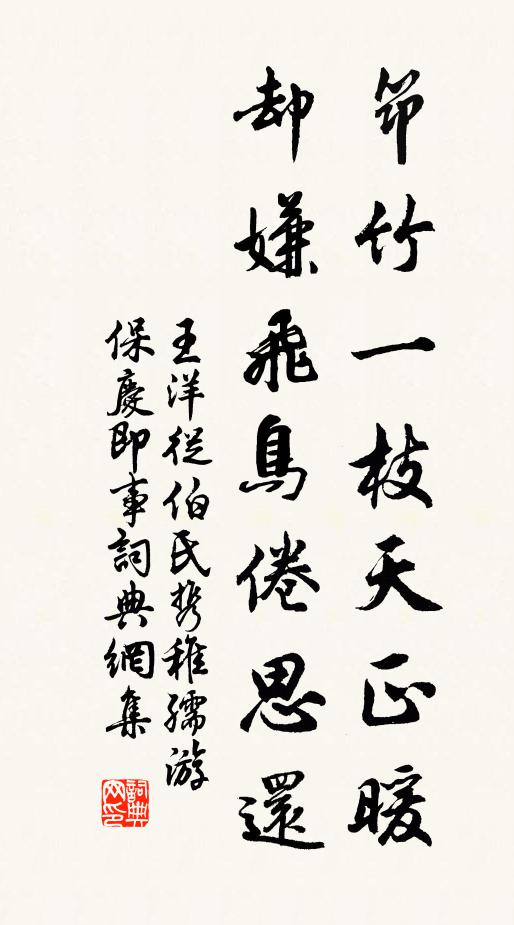 筇竹一枝天正暖
却嫌飛鳥倦思還
王洋從伯氏携稚孺游
保慶即事詞典網集
詞典網印